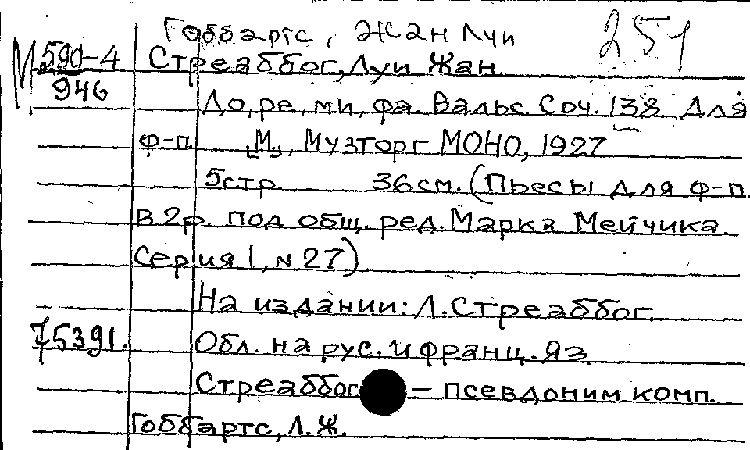 Гоббартс, Жан Луи 251
М 590-4 Стреаббог, Луи Жан
946
До, ре, ми, фа. Вальс. Соч. 138 Для
ф-п [М.], Музторг МОНО, 1927
5стр 36см. (Пьесы для ф-п.
в 2р. под общ. ред. Марка Мейчика
Серия I, N 27)
На издании: Л. Стреаббог.
75391. Обл. на рус. и франц. яз
Стреаббог — псевдоним комп.
Гоббартс, Л. Ж.